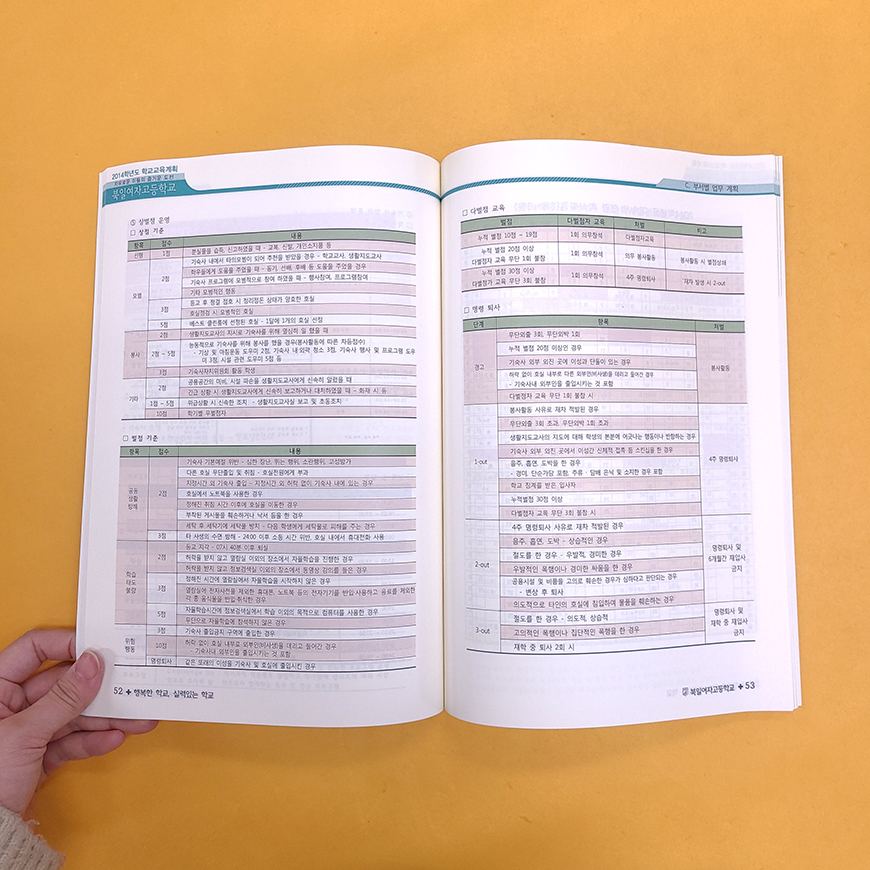 2014학년도 학교교육계획
북일여자고등학교
⑤ 상벌점 운영
□ 상점 기준
항목 점수 내용
선행 1점 분실물을 습득, 신고하였을 때 - 교복, 신발, 개인소지품 등
모범 2점 기숙사 내에서 타의모범이 되어 추천을 받았을 경우 - 학교교사, 생활지도교사
학우들에게 도움을 주었을 때 - 동기, 선배, 후배 등 도움을 주었을 경우
기숙사 프로그램에 모범적으로 참여 하였을 때 - 행사참여, 프로그램참여
기타 모범적인 행동
3점 등교 후 청결 점호 시 정리정돈 상태가 양호한 호실
호실점검 시 모범적인 호실
5점 베스트 클린룸에 선정된 호실 - 1달에 1개의 호실 선정
봉사 2점 생활지도교사의 지시로 기숙사를 위해 열심히 일 했을 때
2점 ~ 5점 능동적으로 기숙사를 위해 봉사를 했을 경우(봉사활동에 따른 차등점수)
- 기상 및 마침운동 도우미 2점, 기숙사 내·외곽 청소 3점, 기숙사 행사 및 프로그램 도우
미 3점, 시설 관련 도우미 5점 등
3점 기숙사자치위원회 활동 학생
기타 2점 공용공간의 미비, 시설 파손을 생활지도교사에게 신속히 알렸을 때
긴급 상황 시 생활지도교사에게 신속히 보고하거나 대처하였을 때 - 화재 시 등
1점 ~ 5점 위급상황 시 신속한 조치 - 생활지도교사실 보고 및 초동조치
10점 학기별 무벌점자
□ 벌점 기준
항목 점수 내용
공동 생활 방해 2점 기숙사 기본예절 위반 - 심한 장난, 뛰는 행위, 소란행위, 고성방가
다른 호실 무단출입 및 취침 - 호실전원에게 부과
지정시간 외 기숙사 출입 - 지정시간 외 허락 없이 기숙사 내에 있는 경우
호실에서 노트북을 사용한 경우
정해진 취침 시간 이후에 호실을 이동한 경우
부착된 게시물을 훼손하거나 낙서 등을 한 경우
세탁 후 세탁기에 세탁물 방치 - 다음 학생에게 세탁물로 피해를 주는 경우
3점 타 사생의 수면 방해 - 24:00 이후 소등 시간 위반, 호실 내에서 휴대전화 사용
학습 태도 불량 2점 등교 지각 - 07시 40분 이후 퇴실
허락을 받지 않고 열람실 이외의 장소에서 자율학습을 진행한 경우
허락을 받지 않고 정보검색실 이외의 장소에서 동영상 강의를 들은 경우
3점 정해진 시간에 열람실에서 자율학습을 시작하지 않은 경우
열람실에 전자사전을 제외한 휴대폰, 노트북 등의 전자기기를 반입·사용하고 음료를 제외한
각 종 음식물을 반입·취식한 경우
5점 자율학습시간에 정보검색실에서 학습 이외의 목적으로 컴퓨터를 사용한 경우
무단으로 자율학습에 참석하지 않은 경우
위험 행동 3점 기숙사 출입금지 구역에 출입한 경우
10점 허락 없이 호실 내부로 외부인(비사생)을 데리고 들어간 경우
- 기숙사내 외부인을 출입시키는 것 포함
명령퇴사 같은 또래의 이성을 기숙사 및 호실에 출입시킨 경우
52 ✚ 행복한 학교, 실력있는 학교
C. 부서별 업무 계획
□ 다벌점 교육
벌점 다벌점자 교육 처벌 비고
누적 벌점 10점 ~ 19점 1회 의무참석 다벌점자교육
누적 벌점 20점 이상
다벌점자 교육 무단 1회 불참 1회 의무참석 의무 봉사활동 봉사활동 시 벌점상쇄
누적 벌점 30점 이상
다벌점자 교육 무단 3회 불참 1회 의무참석 4주 명령퇴사 재차 발생 시 2-out
□ 명령 퇴사
단계 항목 처벌
경고 무단외출 3회, 무단외박 1회 봉사활동
누적 벌점 20점 이상인 경우
기숙사 외부 외진 곳에 이성과 단둘이 있는 경우
허락 없이 호실 내부로 다른 외부인(비사생)을 데리고 들어간 경우
- 기숙사내 외부인을 출입시키는 것 포함
다벌점자 교육 무단 1회 불참 시
1-out 봉사활동 사유로 재차 적발된 경우 4주 명령퇴사
무단외출 3회 초과, 무단외박 1회 초과
생활지도교사의 지도에 대해 학생의 본분에 어긋나는 행동이나 반항하는 경우
기숙사 외부 외진 곳에서 이성간 신체적 접촉 등 스킨십을 한 경우
음주, 흡연, 도박을 한 경우
- 경미, 단순가담 포함, 주류ㆍ담배 은닉 및 소지한 경우 포함
학교 징계를 받은 입사자
누적벌점 30점 이상
다벌점자 교육 무단 3회 불참 시
2-out 4주 명령퇴사 사유로 재차 적발된 경우 명령퇴사 및 6개월간 재입사 금지
음주, 흡연, 도박 - 상습적인 경우
절도를 한 경우 - 우발적, 경미한 경우
우발적인 폭행이나 경미한 싸움을 한 경우
공용시설 및 비품을 고의로 훼손한 경우가 심하다고 판단되는 경우
- 변상 후 퇴사
의도적으로 타인의 호실에 침입하여 물품을 훼손하는 경우
3-out 절도를 한 경우 - 의도적, 상습적 명령퇴사 및 재학 중 재입사 금지
고의적인 폭행이나 집단적인 폭행을 한 경우
재학 중 퇴사 2회 시
북일여자고등학교 ✚ 53